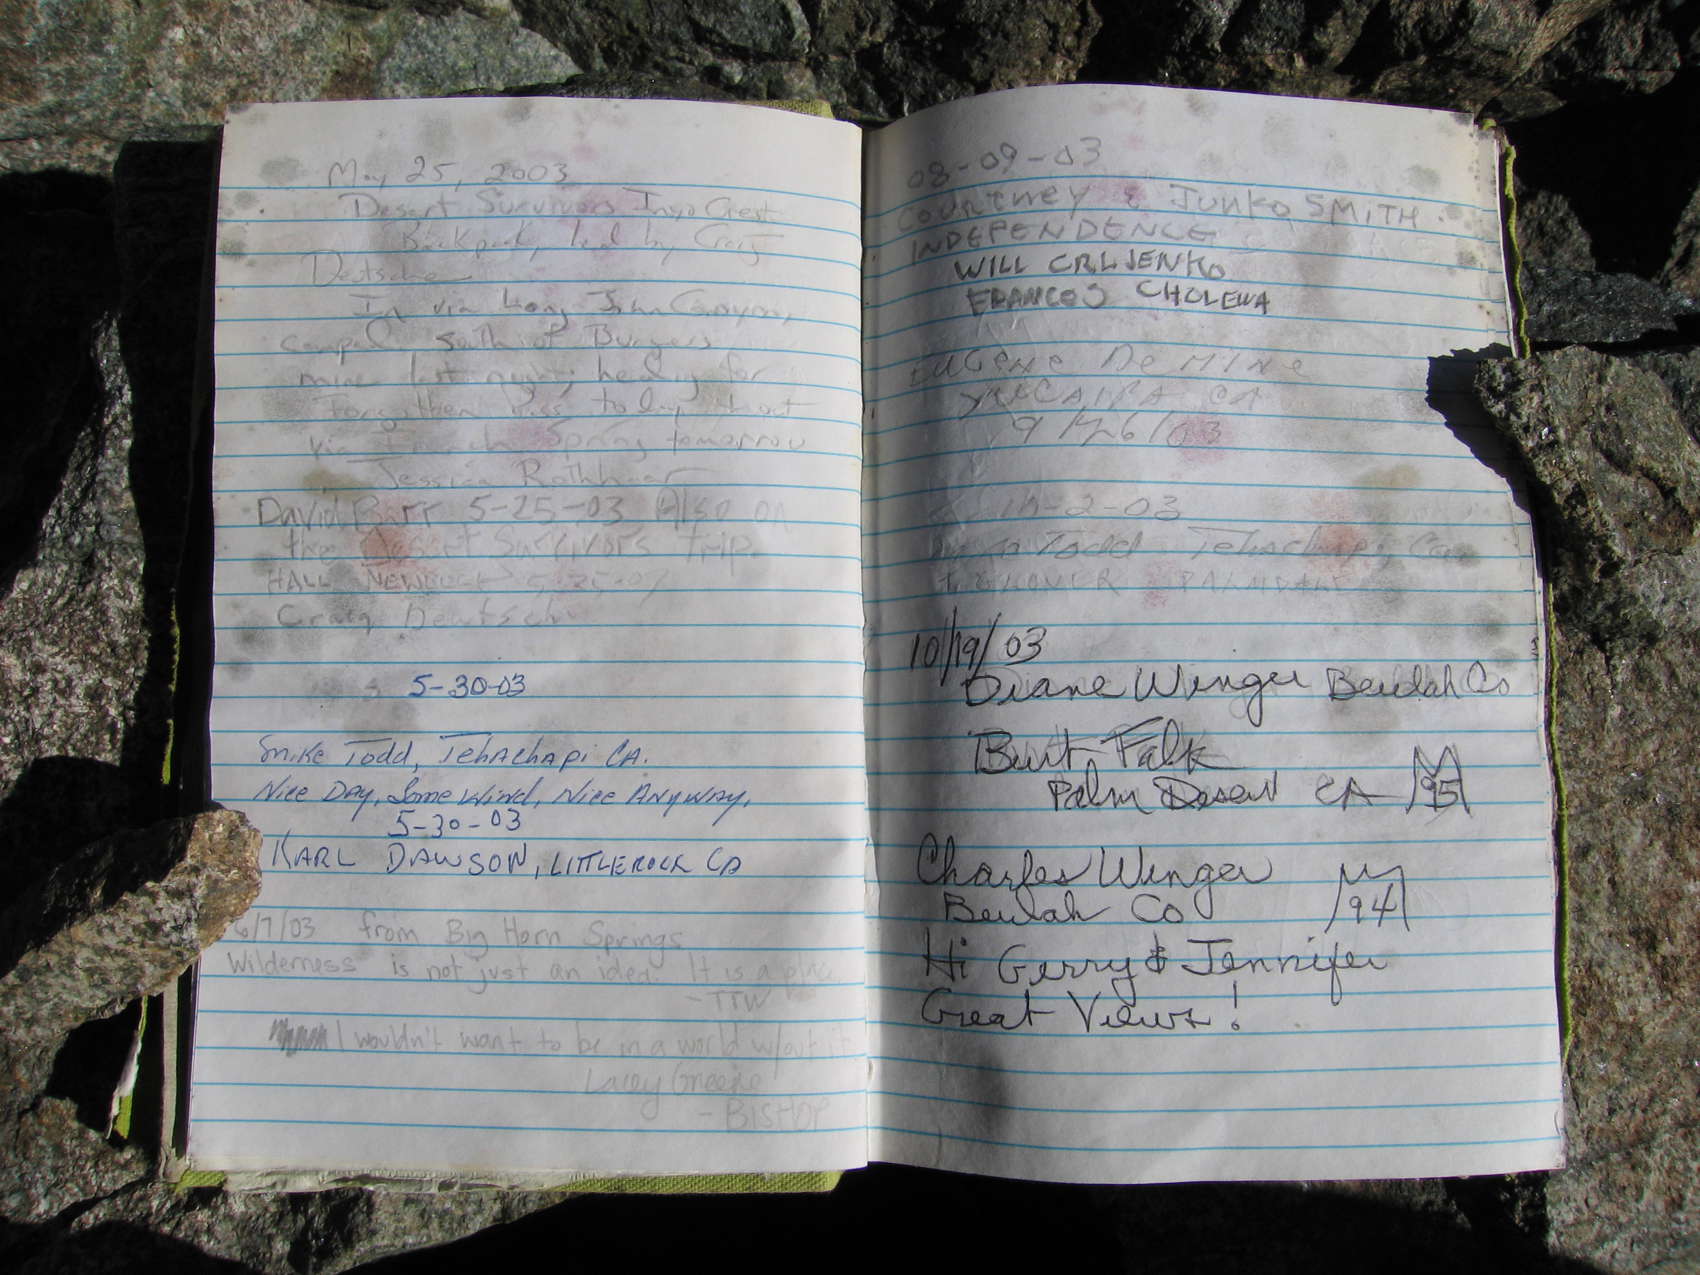 May 25, 2003
Desert Survivors Inyo Crest
Backpack, led by Craig
Deutsche
In via Long John Canyon,
camped south of Burgers
mine last night; heading for
Forgotten Pass today, out
via French Spring tomorrow
Jessica Rothhaar
David Burr 5-25-03 Also on
the Desert Survivors trip.
5-25-03
Craig Deutsche
5-30-03
Mike Todd, Tehachapi CA.
Nice Day, Some Wind, Nice Anyway,
5-30-03
KARL DAWSON, LITTLEROCK CA
6/7/03 from Big Horn Springs
Wilderness is not just an idea. It is a place
- TTW
I wouldn't want to be in a world w/out it
Lacey Greene
- BISHOP
08-09-03
COURTNEY & JUNKO SMITH
INDEPENDENCE
WILL CRLJENKO
CHOLEWA
EUGENE DE MINE
YUCAIPA CA
9/26/03
-2-03
Todd Tehachapi, Ca
PALMDALE
10/19/03
Diane Winger Beulah Co
Burt Falk
Palm Desert CA 95
Charles Winger
Beulah Co 94
Hi Gerry & Jennifer
Great Views!